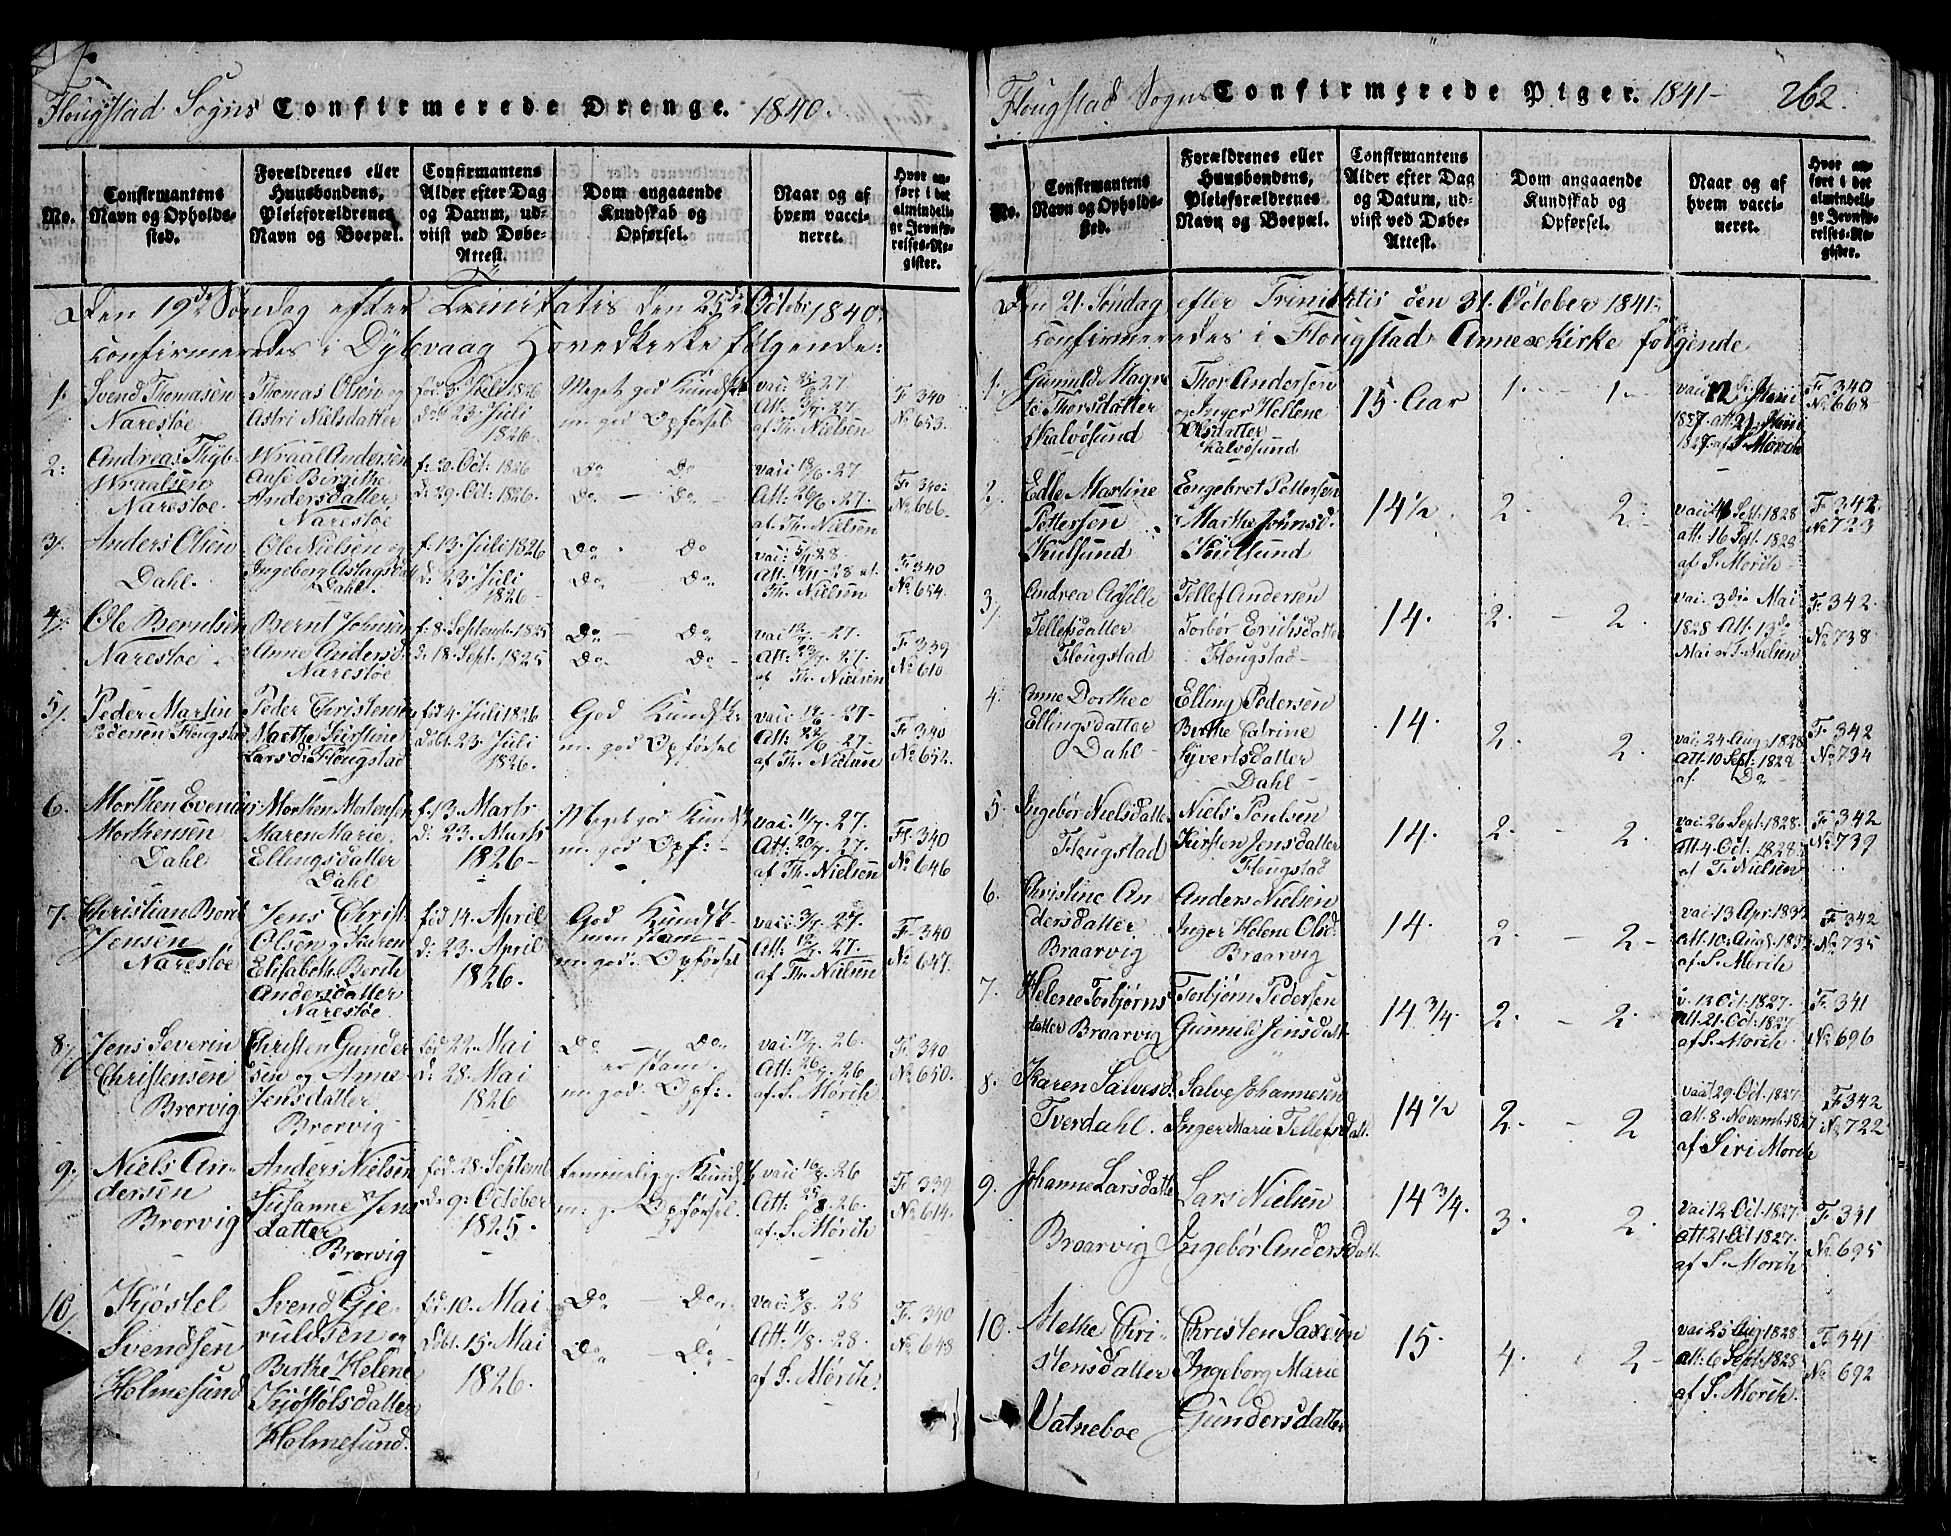 Flougstad Sogns Confirmerede Drenge. 1840.
No.
Confirmantens Navn og Opholdssted.
Forældrenes eller Huusbondens, Pleieforældrenes Navn og Boepæl.
Confirmantens Alder efter Dag og Datum, udviist ved Døbe-Attest.
Dom angaaende Kundskab og Opførsel.
Naar og af hvem vaccineret.
Hvor anført i det almindelige Jevnførelses-Register.
Den 19de Søndag efter Trinitatis den 25de Octobr 1840
confirmeredes i Dybvaag Hovedkirke følgende:
1.
Svend Thomasen
Narestøe
Thomas Olsen og
Astri Nielsdatter
fød 3 Juli 1826
døbt 23 Juli
1826.
Meget god Kundsk
m: god Opførsel
Att:
af Th. Nielsen
F. 340
No 653.
2.
Andreas Thyb-
Wraalsen
Narestoe.
Wraal Andersen
Aase Birgithe
Andersdatter
Narestøe
f: 20. Oct: 1826
d: 29. Oct: 1826.
Do Do
Do Do
vaci 18/6. 27
Att: 26/6. 27.
af Th. Nielsen
F. 340.
No 666.
3.
Anders Olsen
Dahl.
Ole Nielsen og
Ingeborg Aslagsdatt
Dahl.
f. 13. Juli 1826
d: 23. Juli
1826.
Do Do
Do Do
Att: 28 af
Th. Nielsen
F. 340
No 654.
4.
Ole Berndtsen
Narestoe
Bernt Johnsen
Anne Anders d.
Narestoe
f. 8. Septemb. 1825
d. 18. Sept. 1825
Do Do
Do Do
27.
Att: 27.
af Th. Nielsen
F. 339
No 610
5.
Peder Martin
Pedersen Flougstad
Peder Christensen
Marthe Kirstine
Lars d: Flougstad
fød 4. Juli 1826
døbt 23. Juli
1826.
God Kundsk
m. god Opførsel
27.
Att: 27.
af Th. Nielsen
F. 340
No 652.
6.
Morthen Evenius
Morthensen
Dahl
Morthen Mortensen
Maren Marie
Ellingsdatter
Dahl
f. 13. Marts
d: 23. Marts
1826
Meget god Kundsk
m. god Opf:
vai: 11/7. 27.
Att: 20/7. 27.
af Th. Nielsen
F. 340
No 646
7.
Christian Bordt
Jensen
Narestoe
Jens Christ
Olsen og Karen
Elisabeth Berth
Andersdatter
Narestøe
fød 14. April
d: 23. April
1826.
God Kundsk.
m. god: Opførsel
vaci: 3/7. 27.
Att: 12/7. 27.
af Th. Nielsen
F. 340
No 647.
8.
Jens Severin
Christensen
Brorvig
Christen Gunder
sen og Anne
Jensdatter
Brorvig
fød 22. Mai
d: 28. Mai
1826
Do Do
m. god: Opf:
vai: 17/7. 26.
Att: 26/7. 26
af S. Mørch
F. 340
No 650.
9.
Niels An-
dersen
Brorvig
Anders Nielsen
Susanne Jens
datter
Brorvig
fød: 28. Septemb
d: 9. October
1825.
temmelig g: Kundsk
m. g. Opførsel
vaci: 16/8. 26
Att: 25/8. 26.
af S. Mørch
F. 339
No 614.
10.
Kjøstel
Svendsen
Holmesund
Svend Gje-
ruldsen og
Berthe Helene
Kjøstolsdatter
Holmesund.
fød. 10. Mai
døbt. 15. Mai
1826.
Do Do
Do Do
vai: 2/8. 28
Att: 11/8. 28.
af S. Mørch.
F. 340
No 648
Flougstad Sogns Confirmerede Piger. 1841 262.
No.
Confirmantens Navn og Opholdssted.
Forældrenes eller Huusbondens, Pleieforældrenes Navn og Boepæl.
Confirmantens Alder efter Dag og Datum, udviist ved Døbe-Attest.
Dom angaaende Kundskab og Opførsel.
Naar og af hvem vaccineret.
Hvor anført i det almindelige Jevnførelses-Register.
Den 21. Søndag efter Trinitatis den 31. October 1841
confirmeredes i Flougstad Annexkirke følgende
1.
Gunuld Magre
te Thorsdatter
Kalvøsund
Thor Andersen
og Inger Hellene
Olsdatter
Kalvøsund
15. Aar
1. 1.
1827 att. 21
1827. af S. Mørch
F. 340
No 668
2.
Edle Martine
Pettersen
Kiulsund
Engebret Pettersen
Marthe Johnsd.
Kiulsund
14½.
2. 2.
Sept. 1828
att. 16 Sept. 1828
af S. Mørch
F. 342
No 723
3.
Andrea Agille
Tellefsdatter
Flougstad
Tellef Andersen
Torbør Erichsdatter
Flougstad
14.
2. 2.
vai. 3die Mai
1828 Att. 13de
Mai af T. Nielsen
F. 342.
No 738
4.
Anne Dorthea
Ellingsdatter
Dahl
Elling Pedersen
Berthe Catrine
Syvertsdatter
Dahl
14.
2. 2.
vai. 24 Aug. 1828
att. 10 Sept: 1828
af Do
F. 342
No 734
5.
Ingebør Nielsdatter
Flougstad
Niels Poulsen
Kirsten Jensdatter
Flougstad
14.
2. 2.
vai: 26 Sept. 1828.
att. 4. Oct. 1828.
af T. Nielsen
F. 342
No 739
6.
Christine An
dersdatter
Braarvig
Anders Nielsen
Inger Helene Olsd.
Braarvig
14.
2. 2
vai. 13 Apr. 1832
att. 10. Aug. 1832
af S. Mørch
F. 342
No 735
7.
Helene Torbjørns
datter Braarvig
Torbjørn Pedersen
Gunneld Jensdatt
14¾.
2. 2.
v. 13 Oct: 1827.
att. 21. Oct: 1827
af S. Mørch.
F. 341
No 696
8.
Karen Salvesd.
Tverdahl.
Salve Johannesen
Inger Marie Tellefsdatt.
14½
2. 2
vai 29. Oct. 1827
att. 8. Novemb. 1827
af Siri Mørch
F. 342
No 722
9.
Johanne Larsdatte
Braarvig
Lars Nielsen
Ingebør Andersdatt.
14¾.
3. 2.
vai 12. Oct. 1827.
att. 21 Oct 1827.
af S. Mørch
F. 341
No. 695
10.
Methe Chri-
stensdatter
Vatneboe
Christen Saxesen
Ingeborg Marie
Gundersdatter
15.
4. 2
vai 25 Aug 1828
att: 6 Sept: 1828
af S. Mørch.
F. 341
No 692